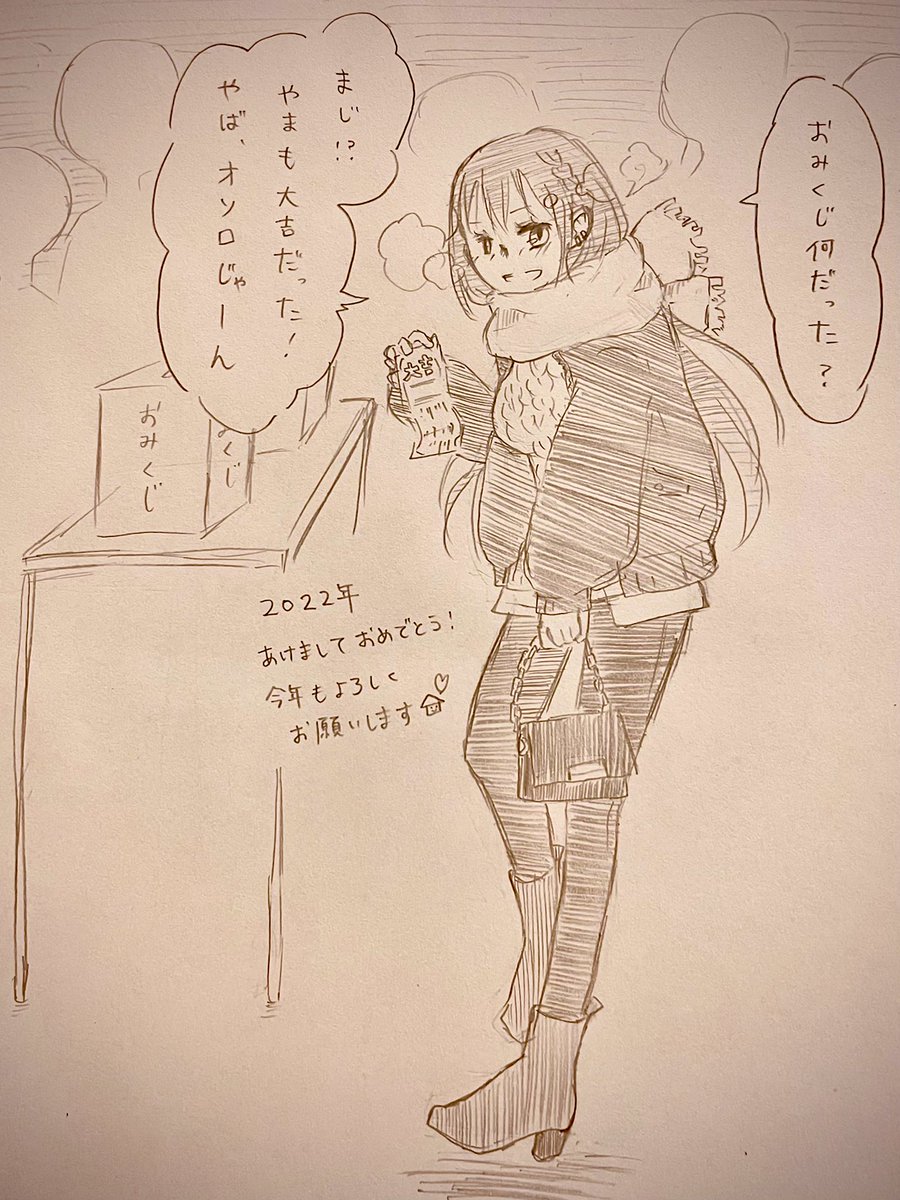 おみくじ何だった？
まじ!?
やまも大吉だった！
やば、オソロじゃーん
大吉
おみくじ
くじ
2022年
あけましておめでとう！
今年もよろしく
お願いします